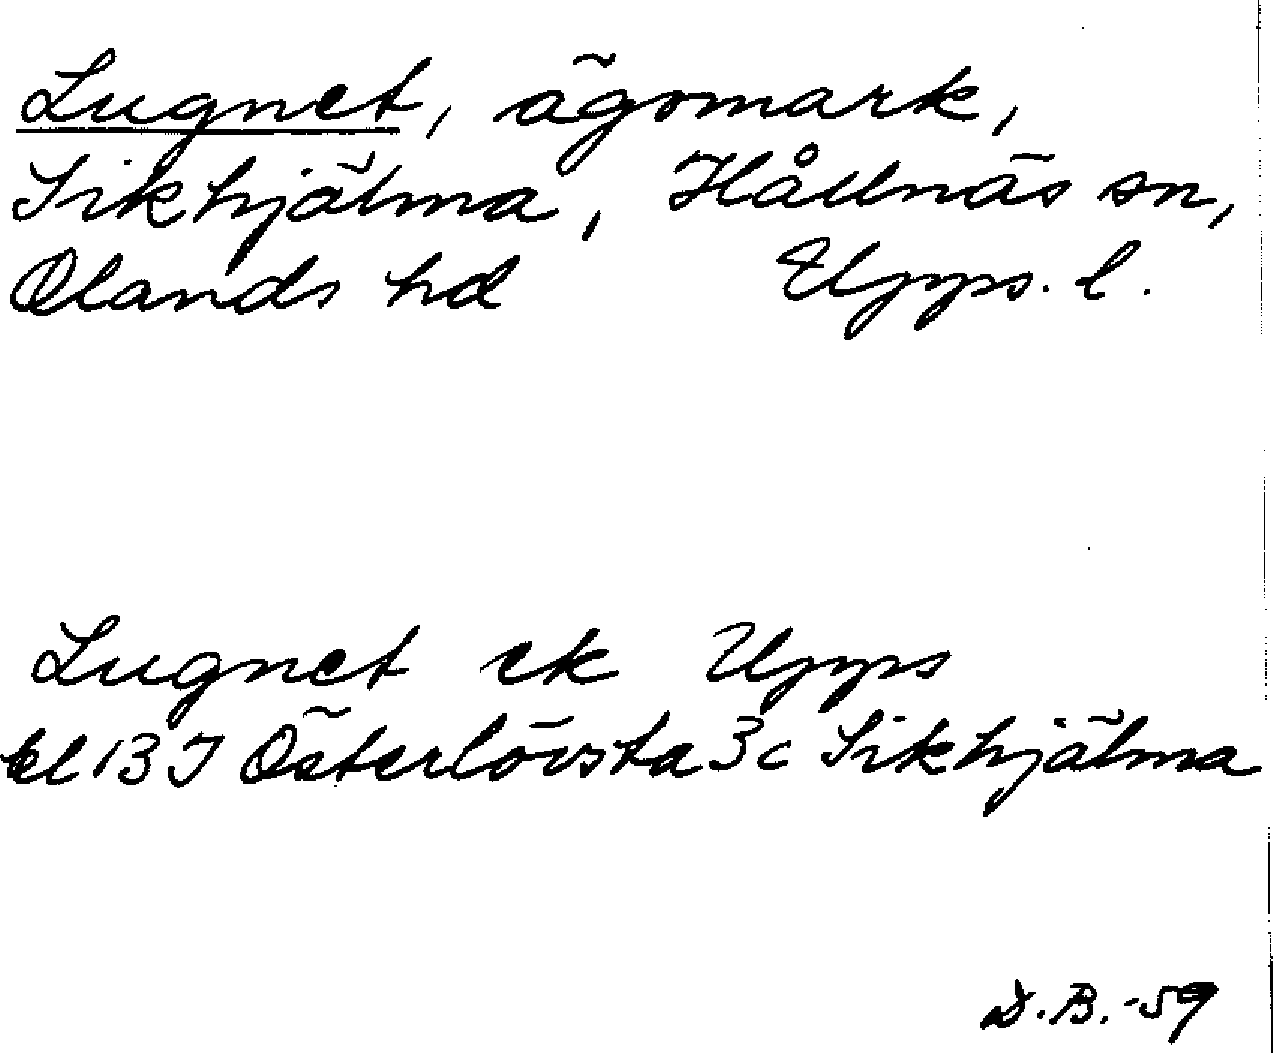 Lugnet, ägomark,
Sikhjälma, Hållnäs sn,
Olands hd Upps. l.
Lugnet ek Upps
bl 13 I Österlövsta 3c Sikhjälma
D.B.-59